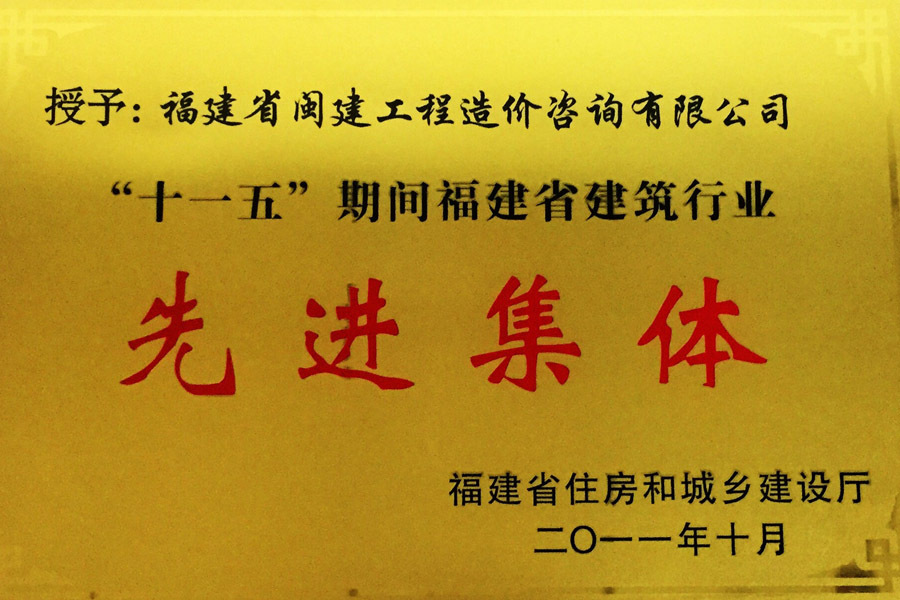 授予：福建省闽建工程造价咨询有限公司
“十一五”期间福建省建筑行业
先进集体
福建省住房和城乡建设厅
二〇一一年十月